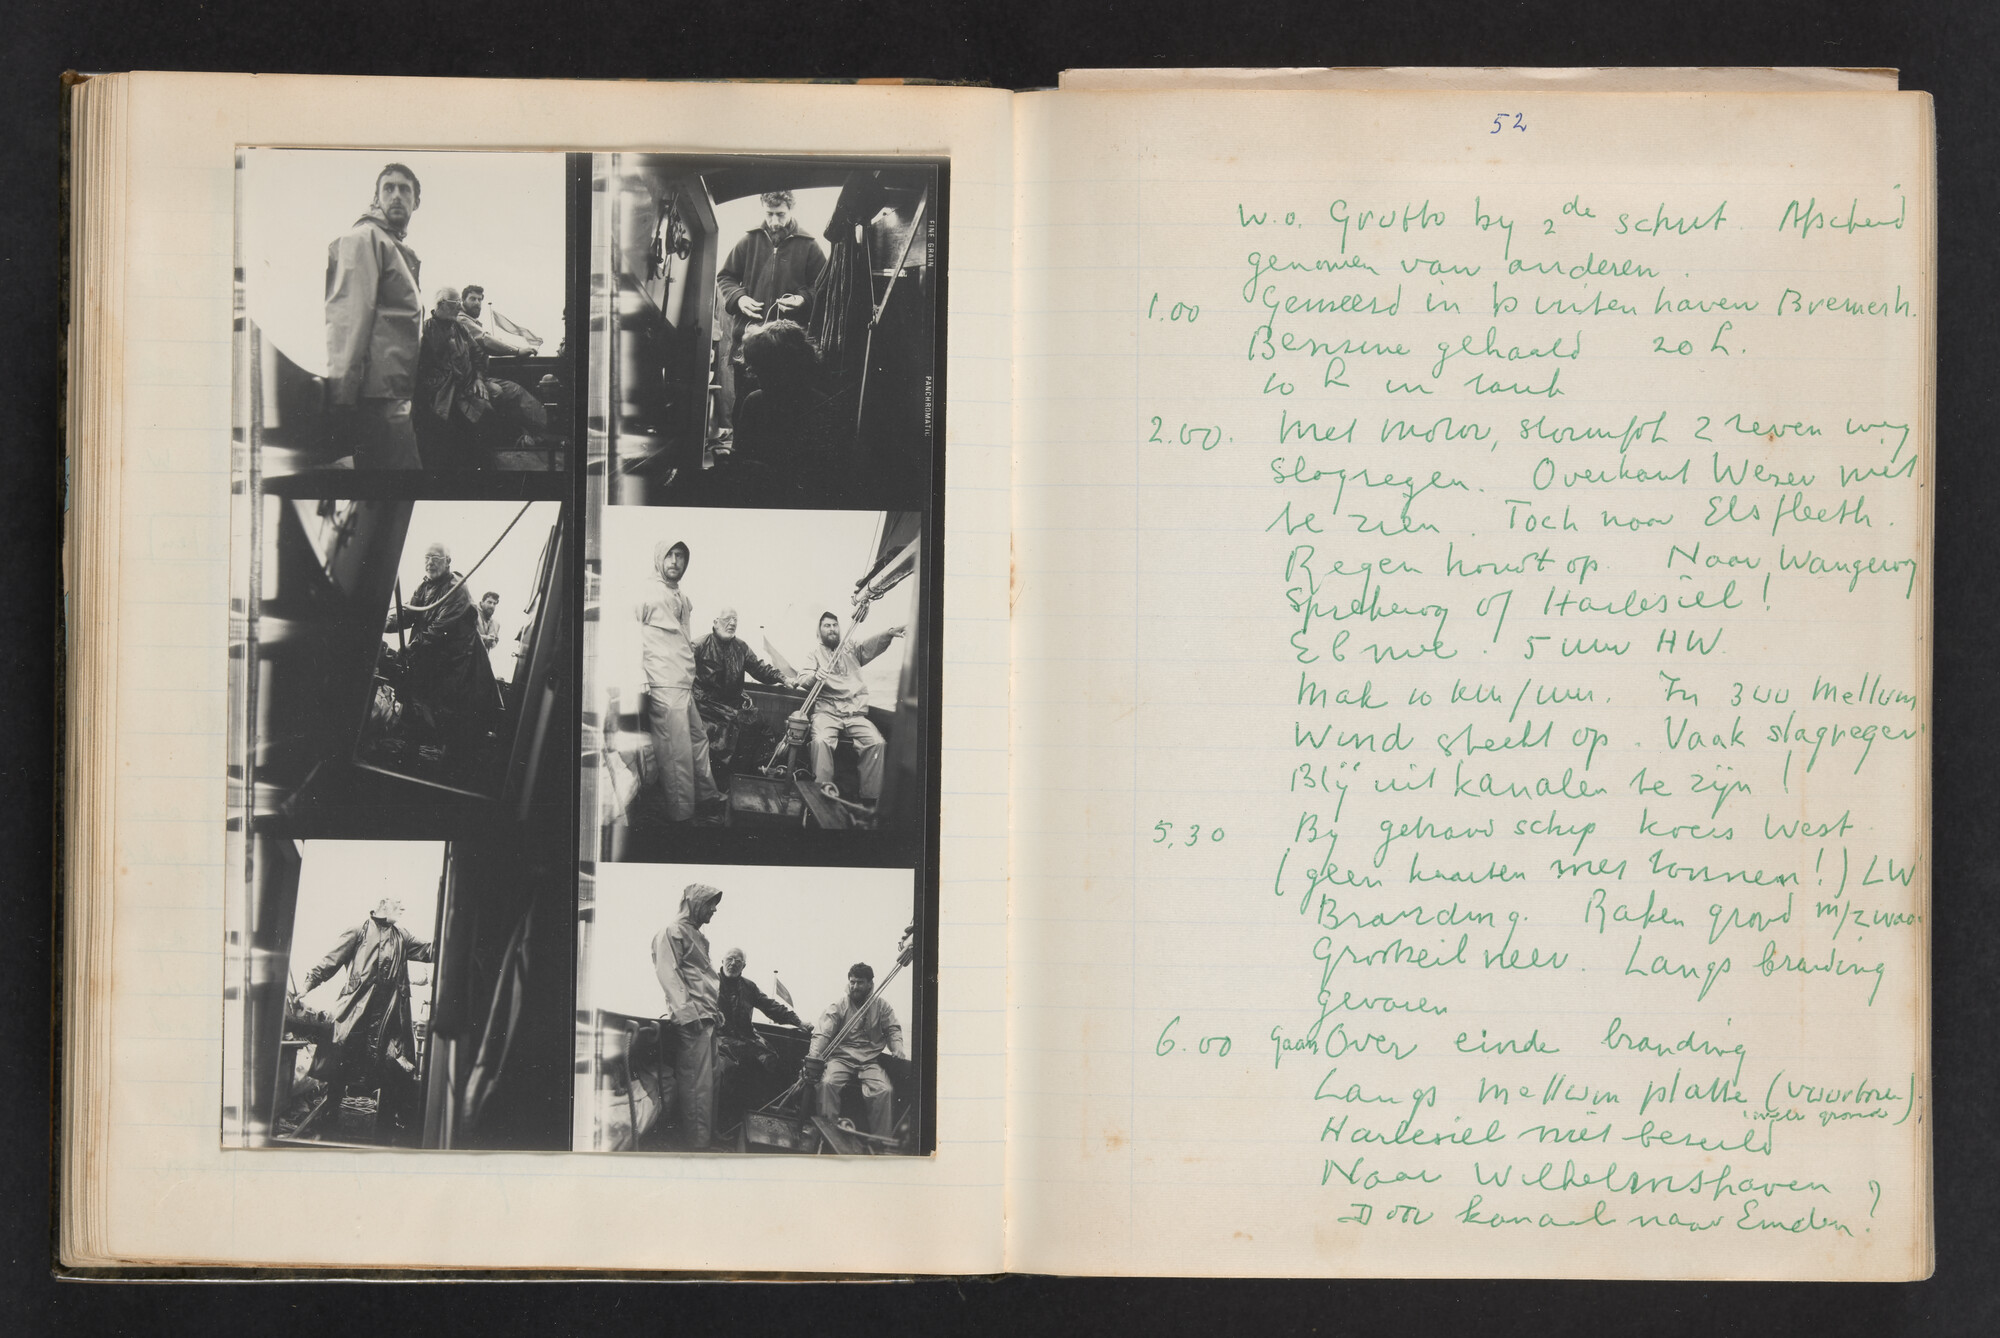 FINE GRAIN
PANCHROMATIC
52
w.o. Grutto by 2de schut. Afscheid
genomen van anderen.
1.00 Gemeerd in buitenhaven Bremerh.
Benzine gehaald 20 L.
10 L in tank
2.00. Met motor, stormfok 2 reven weg
Slagregen. Overkant Weser niet
te zien. Toch naar Elsfleeth.
Regen houdt op. Naar Wangeroog
Spiekeroog of Harlesiel!
Eb mee. 5 uur HW.
Mak 10 km/uur. In 300 Mellum
Wind steekt op. Vaak slagregen
Blij uit kanalen te zijn!
5,30 By gestrand schip koers West
(geen kaarten met tonnen!) LW
Branding. Raken grond m/zwaa
Grootzeil neer. Langs branding
gevaren
6.00 Gaan Over einde branding
Langs Mellum platte (
grond)
Harlesiel niet bezeild
Naar Wilhelmshaven
Door kanaal naar Emden?